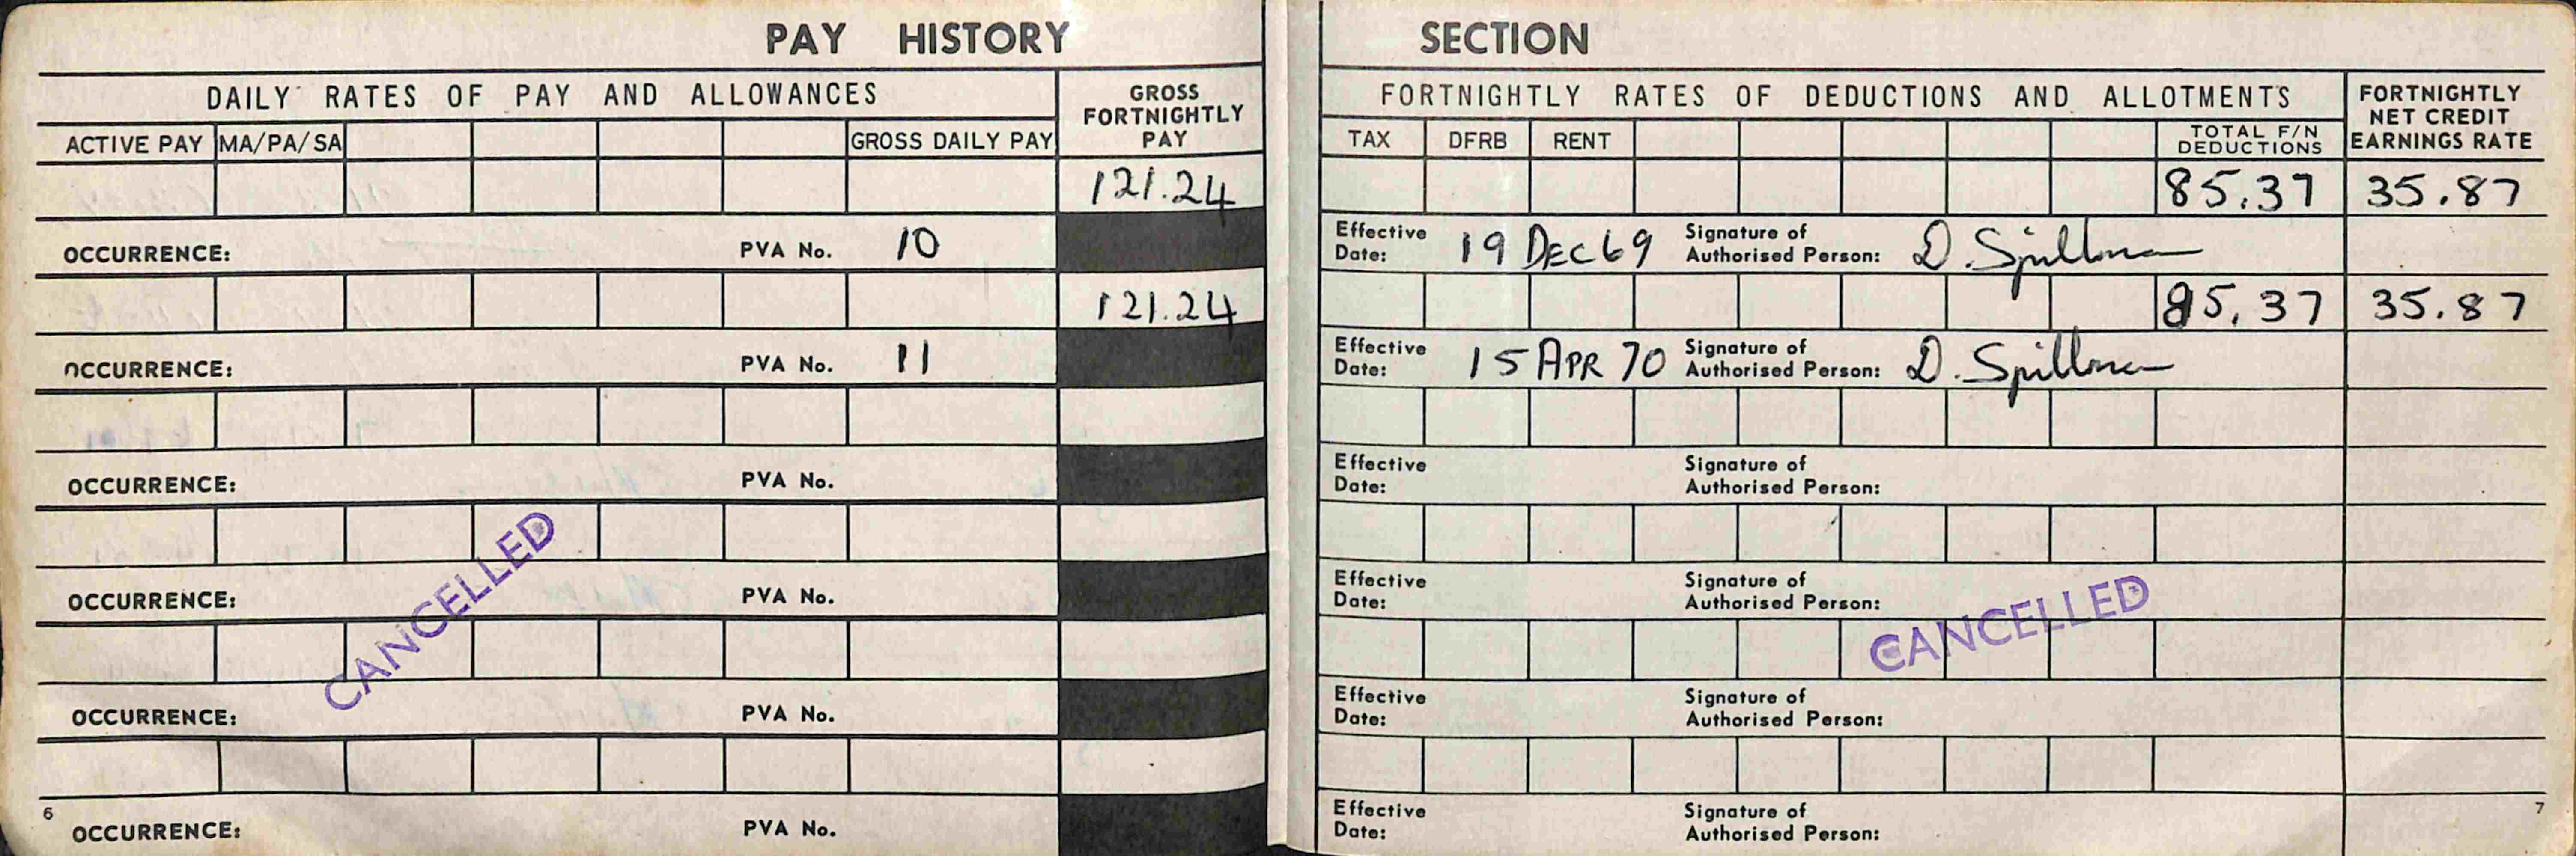 PAY HISTORY SECTION
DAILY RATES OF PAY AND ALLOWANCES
GROSS FORTNIGHTLY PAY
ACTIVE PAY MA/PA/SA GROSS DAILY PAY
FORTNIGHTLY RATES OF DEDUCTIONS AND ALLOTMENTS
FORTNIGHTLY NET CREDIT EARNINGS RATE
TAX DFRB RENT TOTAL F/N DEDUCTIONS
121.24 85.37 35.87
OCCURRENCE: PVA No. 10
Effective Date: 19 DEC 69 Signature of Authorised Person: D. Spillman
121.24 85.37 35.87
OCCURRENCE: PVA No. 11
Effective Date: 15 APR 70 Signature of Authorised Person: D. Spillman
OCCURRENCE: PVA No.
Effective Date: Signature of Authorised Person:
OCCURRENCE: PVA No.
Effective Date: Signature of Authorised Person:
CANCELLED
CANCELLED
OCCURRENCE: PVA No.
Effective Date: Signature of Authorised Person:
6 OCCURRENCE: PVA No.
Effective Date: Signature of Authorised Person:
7